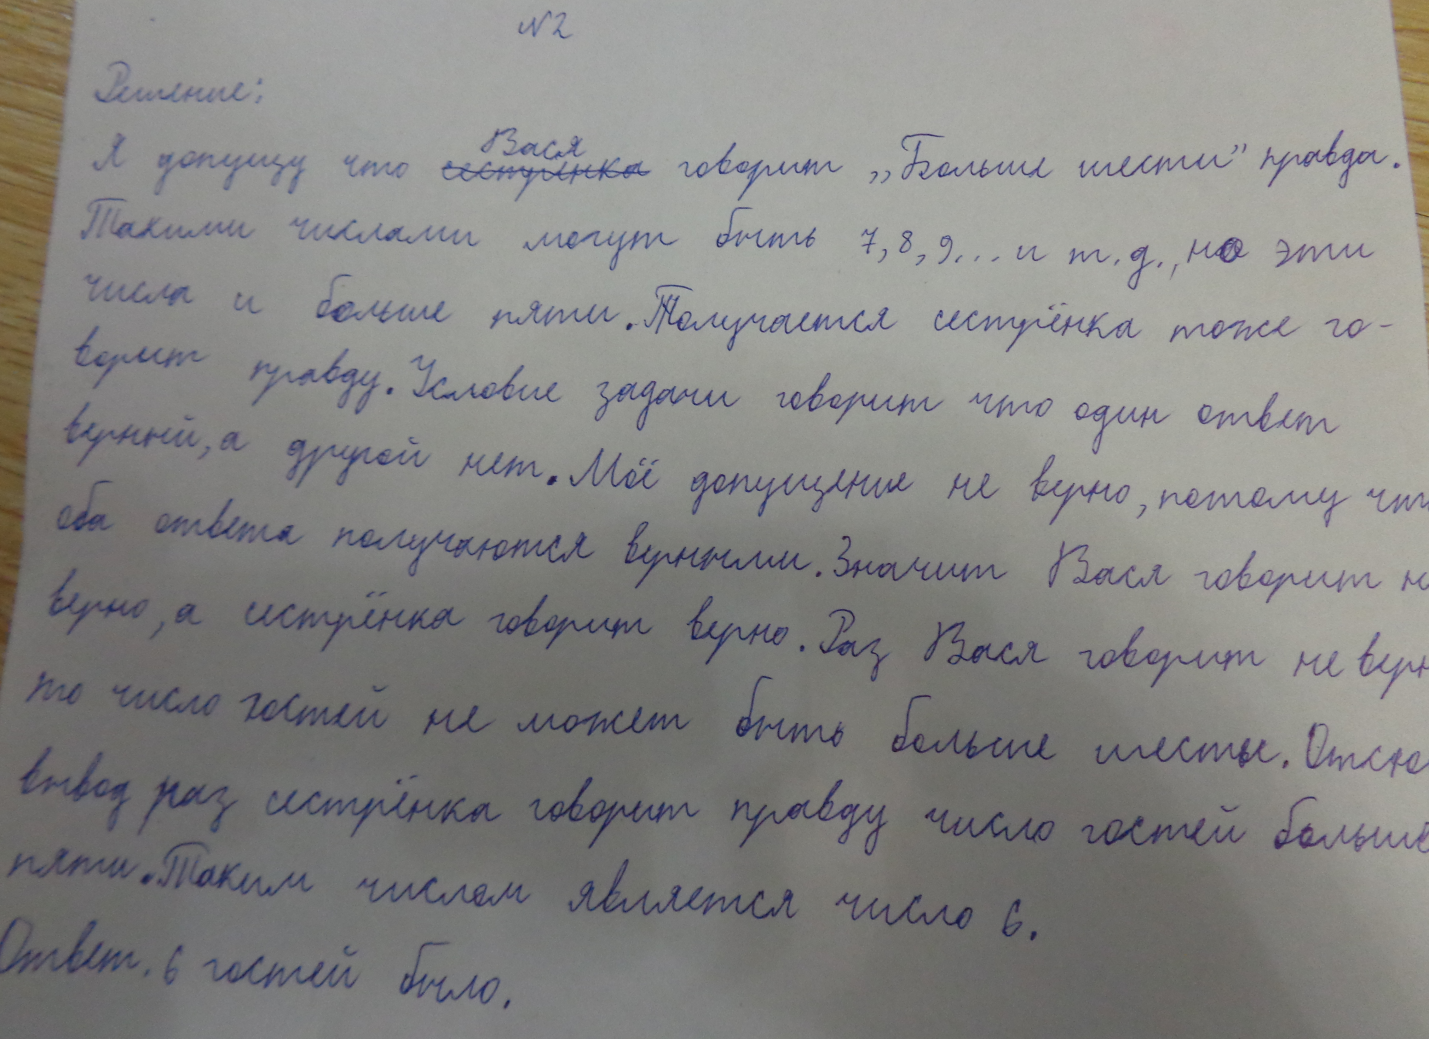 №2
Решение:
Я допущу что сестрёнка Вася говорит „Больше шести” правда.
Такими числами могут быть 7,8,9... и т.д., но эти
числа и больше пяти. Получается сестрёнка тоже го-
ворит правду. Условие задачи говорит что один ответ
верный, а другой нет. Моё допущение не верно, потому чт
оба ответа получаются верными. Значит Вася говорит н
верно, а сестрёнка говорит верно. Раз Вася говорит не верн
то число гостей не может быть больше шесты. Отсю
вывод раз сестрёнка говорит правду число гостей больше
пяти. Таким числом является число 6.
Ответ. 6 гостей было.